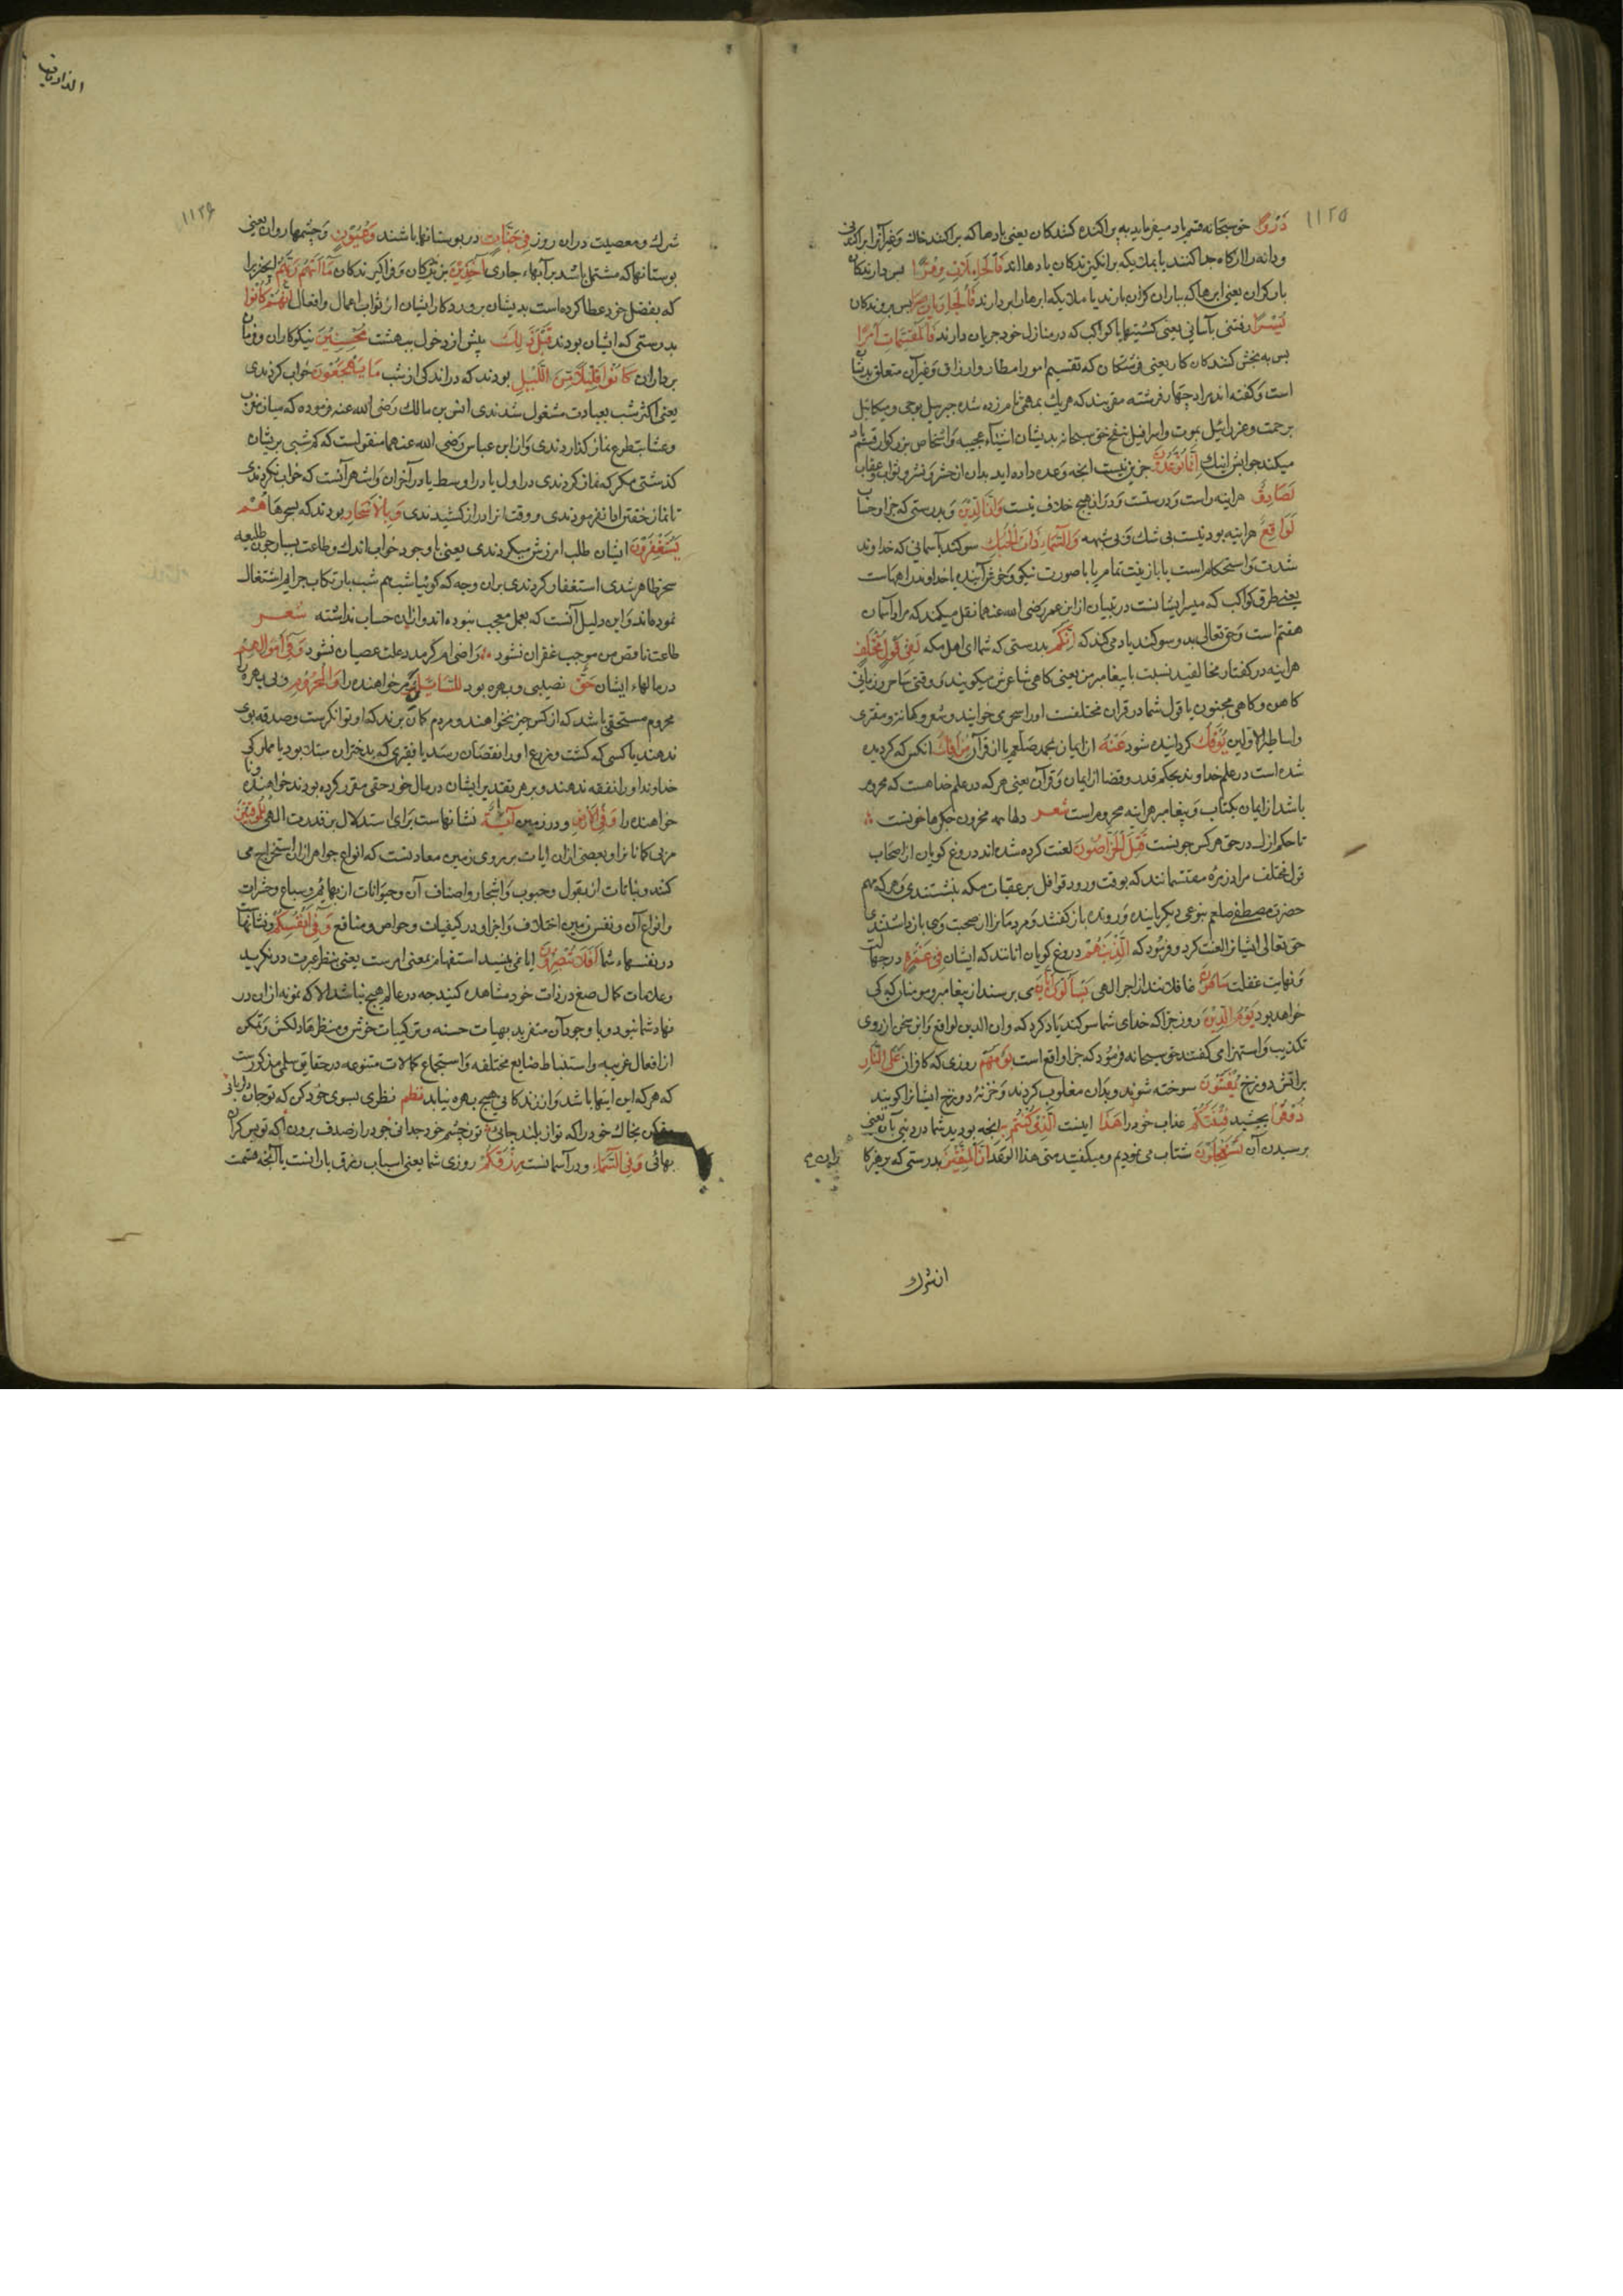 ١١٢٥
ذَرْوًا حق سبحانه قسم یاد میفرماید به پراکنده کنندکان یعنی بادها که پراکند خاك وغیر آنرا
ودانه را از کاه جدا کنند یا بملایکه برانکیزندکان بادها اند فَالْحَامِلَاتِ وِقْرًا پس بردارندکان
بار کران یعنی ابرها که بباران کران بارند یا ملایکه ابرها را بردارند فَالْجَارِيَاتِ پس بروندکان
يُسْرًا رفتنی بآسانی یعنی کشتیها یا کواکب که در منازل خود جریان دارند فَالْمُقَسِّمَاتِ أَمْرًا
پس به بخش کنندکان کار یعنی فرشتکان که تقسیم امور امطار وارزاق وغیر آن متعلق بدیشان
است وکفته اند مراد چهار فرشته مقربند که هر یك بمهمی نامزد شده جبرئیل بوحی ومیکائیل
برحمت وعزرائیل بموت واسرافیل بنفخ حق سبحانه بدیشان اشیاء عجیبه واشخاص بزرکوار قسم یاد
میکند جوابش اینك إِنَّمَا تُوعَدُونَ جز این نیست آنچه وعده داده اید بدان از حشر ونشر وثواب وعقاب
لَصَادِقٌ هراینه راست ودرستست ودران هیچ خلاف نیست وَإِنَّ الدِّينَ وبدرستی که جزا وحساب
لَوَاقِعٌ هراینه بودنیست بی شك وبی شبهه وَالسَّمَاءِ ذَاتِ الْحُبُكِ سوکند بآسمانی که خداوند
شدت واستحکام است یا با زینت تمام یا با صورت نیکو وخوش آینده یا خداوند راههاست
یعنی طرق کواکب که مسیر ایشانست در تبیان از ابن عمر رضی الله عنهما نقل میکند که مراد آسمان
هفتم است وحق تعالی بدو سوکند یاد می کند که إِنَّكُمْ بدرستی که شما ای اهل مکه لَفِي قَوْلٍ مُخْتَلِفٍ
هراینه در کفتار مخالفید نسبت با پیغامبر من یعنی کاهی شاعرش میکویند ووقتی ساحر وزمانی
کاهن وکاهی مجنون یا قول شما در قران مختلفست اورا سحر می خوانید وشعر وکهانت ومفتری
واساطیر الاولین يُؤْفَكُ کردانیده شود عَنْهُ از ایمان بمحمد صلعم یا از قرآن مَنْ أُفِكَ انکس که کردیده
شده است در علم خداوند بحکم قدر وقضا از ایمان وقرآن یعنی هر که در علم خدا هست که محروم
باشد از ایمان بکتاب وپیغامبر هراینه محروم است شعر دلها همه محزون جکرها خونست
تا حکم ازل در حق هر کس چونست قُتِلَ الْخَرَّاصُونَ لعنت کرده شده اند دروغ کویان از اصحاب
قول مختلف مراد زمرهٔ مقتسمانند که بوقت ورود قوافل بر عقبات مکه بنشستندی وهر که مهم
حضرت مصطفی صلعم بنوعی دیکر باینده ورونده باز کفتند ومردمانرا از صحبت وی باز داشتندی
حق تعالی ایشانرا لعنت کرد وفرمود که الَّذِينَ هُمْ دروغ کویان انانند که ایشان فِي غَمْرَةٍ در جهالت
ونهایت غفلت سَاهُونَ غافلانند از اجر الهی يَسْأَلُونَ أَيَّانَ می پرسند از پیغامبر ومومنان که کی
خواهد بود يَوْمُ الدِّينِ روز جزا که خدای شما سوکند یاد کرد که وان الدین لواقع واین سخن از روی
تکذیب واستهزا می کفتند حق سبحانه فرمود که جزا واقع است يَوْمَ هُمْ روزی که کافران عَلَى النَّارِ
بر اتش دوزخ يُفْتَنُونَ سوخته شوند وبدان مغلوب کردند وخزنهٔ دوزخ ایشانرا کویند
ذُوقُوا بچشید فِتْنَتَكُمْ عذاب خود را هَذَا اینست الَّذِي كُنْتُمْ بِهِ انچه بودید شما در دنیا بآن یعنی
برسیدن آن تَسْتَعْجِلُونَ شتاب می نمودیم ومیکفتید متی هذا الوعد إِنَّ الْمُتَّقِينَ بدرستی که پرهیزکا
از شرك
الذاریات
١١٢٦
شرك ومعصیت دران روز فِي جَنَّاتٍ در بوستانها باشند وَعُيُونٍ وچشمها روان یعنی
بوستانها که مشتمل باشد بر آبهاء جاری آخِذِينَ وفراکیرندکان مَا آتَاهُمْ رَبُّهُمْ انچیز را
که بفضل خود عطا کرده است بدیشان پروردکار ایشان از ثواب اعمال وافعال إِنَّهُمْ كَانُوا
بدرستی که ایشان بودند قَبْلَ ذَلِكَ پیش از دخول بهشت مُحْسِنِينَ نیکوکاران وفرمان
برداران كَانُوا قَلِيلًا مِنَ اللَّيْلِ بودند که در اندکی از شب مَا يَهْجَعُونَ خواب کردندی
یعنی اکثر شب بعبادت مشغول شدندی انس بن مالك رضی الله عنه فرموده که میان مغرب
وعشا بتطوع نماز کذاردندی واز ابن عباس رضی الله عنهما منقولست که کم شبی بریشان
کذشتی مکر که نماز کردندی در اول یا در اوسط یا در آخران واشهر آنست که خواب نکردندی
تا نماز خفتن ادا نفرمودندی ووقت انرا دراز کشیدندی وَبِالْأَسْحَارِ بودند که بسحرها هُمْ
يَسْتَغْفِرُونَ ایشان طلب امرزش میکردندی یعنی با وجود خواب اندك وطاعت بسیار چون طلیعه
سحر ظاهر شدی استغفار کردندی بران وجه که کوئیا شب هم شب بارتکاب جرایم اشتغال
نموده اند واین دلیل آنست که بعمل معجب نبوده اند وازان حساب نداشته شعر
طاعت ناقص من موجب غفران نشود راضی ام کر مدد علت عصیان نشود وَفِي أَمْوَالِهِمْ
در مالهاء ایشان حَقٌّ نصیبی وبهره بود لِلسَّائِلِ مر خواهنده را وَالْمَحْرُومِ وبی بهره
محروم مستحقی باشد که از کس چیز نخواهند ومردم کمان برند که او توانکرست وصدقه بوی
ندهند یا کسی که کشت ومزرع اورا نقصان رسد یا فقیری که بدختران مبتلا بود یا مملوکی
خداوند اورا نفقه ندهند وبر هر تقدیر ایشان در مال خود حقی مقرر کرده بودند خواهنده
خواهنده را وَفِي الْأَرْضِ ودر زمین آيَاتٌ نشانهاست برای استدلال بر قدرت الهی لِلْمُوقِنِينَ
مر بی کمانانرا وبعضی ازان ایات بر روی زمین معادنست که انواع جواهر ازان استخراج می
کنند ونباتات از بقول وحبوب واشجار واصناف آن وحیوانات از بهایم وسباع وحشرات
وانواع آن ونفس زمین اختلاف واجزاء در کیفیات وخواص ومنافع وَفِي أَنْفُسِكُمْ ونشانهاست
در نفسهاء شما أَفَلَا تُبْصِرُونَ ایا نمی بینید استفهام بمعنی امرست یعنی بنظر عبرت در نکرید
وعلامات کمال صنع در ذات خود مشاهده کنید چه در عالم هیچ نباشد الا که نمونه ازان در
نهاد شما نبود وبا وجود آن منفرید بهیات حسنه وترکیبات خوش ومنظرهاء دلکش وتمکن
از افعال غریبه واستنباط صنایع مختلفه واستجماع کمالات متنوعه در حقایق سلمی مذکورست
که هر که این اینها باشد وازندکانی هیچ بهره نیابد نظم نظری بسوی خود کن که تو جان دلربائی
مفکن بخاك خود را که تو از بلند جائی تو ز چشم خود جدائی خود را از صدف برون آ که تو بس کران
بهائی وَفِي السَّمَاءِ ودر آسمانست رِزْقُكُمْ روزی شما یعنی اسباب رزق بارانست یا آنچه قسمت